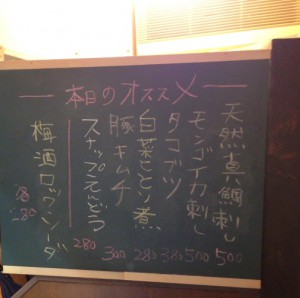 本日のオススメ
天然真鯛刺し 500
モンゴイカ刺し 500
タコブツ 380
白菜とトリ煮 280
豚キムチ 300
スナップえんどう 280
梅酒ロック・ソーダ 280